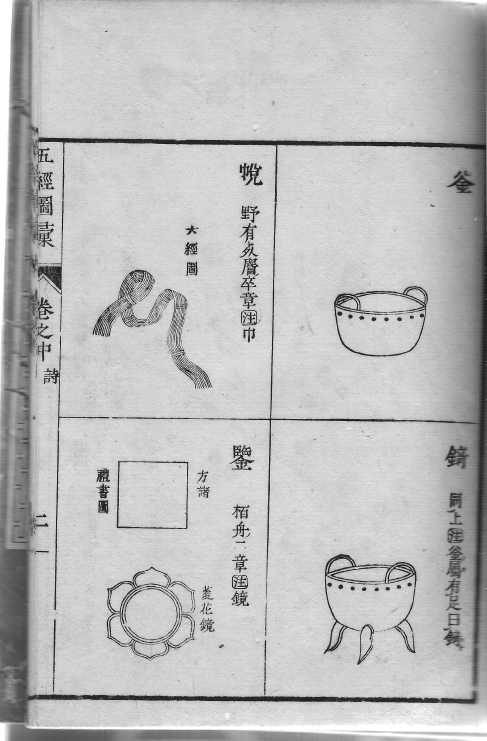 釜
錡
同上注釜屬有足曰錡
帨
野有死麕卒章注巾
六經圖
鑒
栢舟二章注鏡
方諸
禮書圖
菱花鏡
五經圖彙
卷之中
詩
二